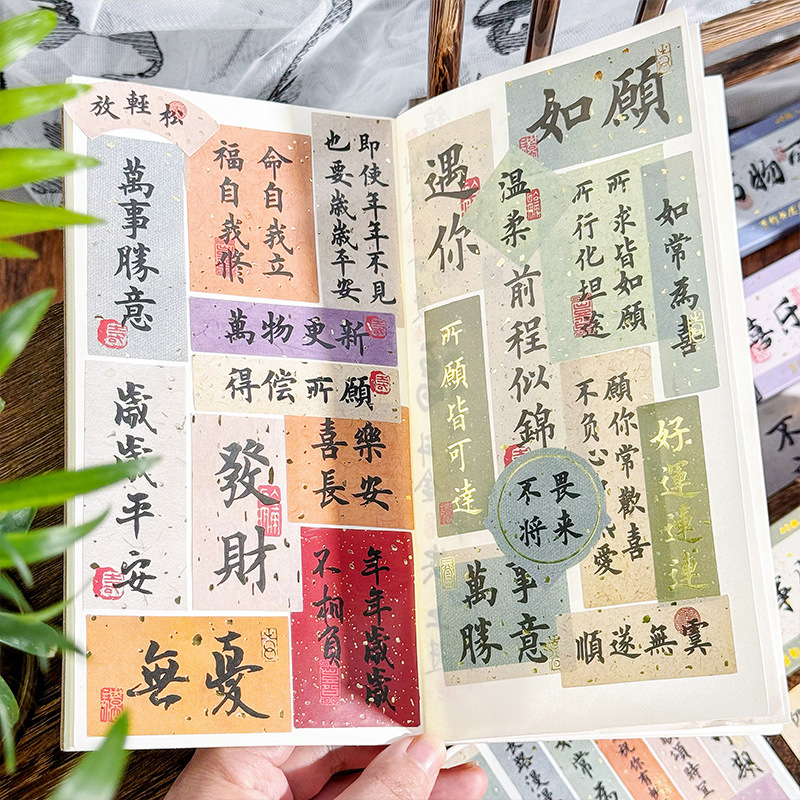 放輕松
萬事勝意
命自我立
福自我修
即使年年不見
也要歲歲平安
萬物更新
得偿所願
歲歲平安
發財
喜樂
長安
無憂
年年歲歲
不相負
如願
遇你
溫柔
所求皆如願
所行化坦途
如常為喜
前程似錦
所願皆可達
願你常歡喜
不負心 愛
好運連連
不畏
将来
萬事
勝意
順遂無虞
萬物
喜乐
不
路漫漫
如常為
祝你有
頌時宜
期